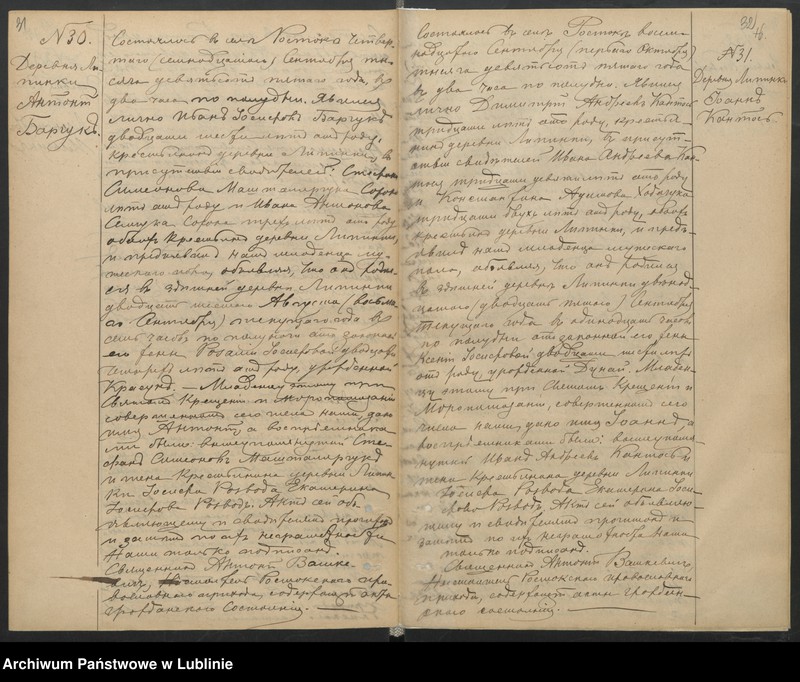 31
№ 30.
Деревня Ли-
пинки
Антонъ
Барчукъ.
Состоялось въ селѣ Ростока четвер-
таго (семнадцатаго) Сентября ты-
сяча девятьсотъ пятаго года, въ
два часа по полудни. Явился
лично Иванъ Іосифовъ Барчукъ
двадцати шести лѣтъ отъ роду,
крестьянинъ деревни Липинки, въ
присутствіи свидѣтелей:
Симеонова Машталярука Сорока
лѣтъ отъ роду и Ивана Антонова
Сорока трехъ лѣтъ отъ роду
обоихъ крестьянъ деревни Липинки,
и предъявилъ намъ младенца му-
жескаго пола, объявляя, что онъ родил-
ся въ здѣшней деревнѣ Липинки
двадцать шестого Августа (восьма-
го Сентября) текущаго года въ
семь часовъ по полудни отъ законной
его жены Розаліи Іосифовой двадцати
четырехъ лѣтъ отъ роду, урожденной
Младенцу этому при
Святомъ Крещеніи и Мѵропомазаніи
совершенномъ сего числа нами, дано
имя Антонъ, а воспріемника-
ми были: вышеупомянутый Сте-
фанъ Симеоновъ Машталярукъ
и жена крестьянина деревни Липин-
ки Іосифа Розвода Екатерина
Іосифова Розводъ. Актъ сей объ-
являющему и свидѣтелямъ прочитанъ
и затѣмъ по ихъ неграмотности
Нами только подписанъ.
Священникъ Антонъ Вашке-
вичъ, Настоятель Ростокскаго пра-
вославнаго прихода, содержащій акты
гражданскаго состоянія.
32
№ 31.
Деревня Липинки
Іоаннъ
Кантосъ
Состоялось въ селѣ Ростока восем-
надцатаго Сентября (перваго Октября)
тысяча девятьсотъ пятаго года
въ два часа по полудни. Явился
лично Димитрій Андреевъ Кантосъ
тридцати лѣтъ отъ роду, крестья-
нинъ деревни Липинки, въ присут-
ствіи свидѣтелей Ивана Андреева Кан-
тоса тридцати девяти лѣтъ отъ роду
и Константина
тридцати двухъ лѣтъ отъ роду, обоихъ
крестьянъ деревни Липинки, и предъ-
явилъ намъ младенца мужескаго
пола, объявляя, что онъ родился
въ здѣшней деревнѣ Липинки двѣнад-
цатаго (двадцать пятаго) Сентября
текущаго года въ одинадцать часовъ
по полудни отъ законной его жены
Ксеніи Іосифовой двадцати шести лѣтъ
отъ роду, урожденной Дунай. Младен-
цу этому при Святомъ Крещеніи и
Мѵропомазаніи, совершенномъ сего
числа нами, дано имя Іоаннъ, а
воспріемниками были: вышеупомя-
нутый Иванъ Андреевъ Кантосъ и
жена крестьянина деревни Липинки
Іосифа Розвода Екатерина Іоси-
фова Розводъ. Актъ сей объявляю-
щему и свидѣтелямъ прочитанъ и
затѣмъ по ихъ неграмотности нами
только подписанъ.
Священникъ Антонъ Вашкевичъ,
Настоятель Ростокскаго православнаго
прихода, содержащій акты граждан-
скаго состоянія.
Archiwum Państwowe w Lublinie